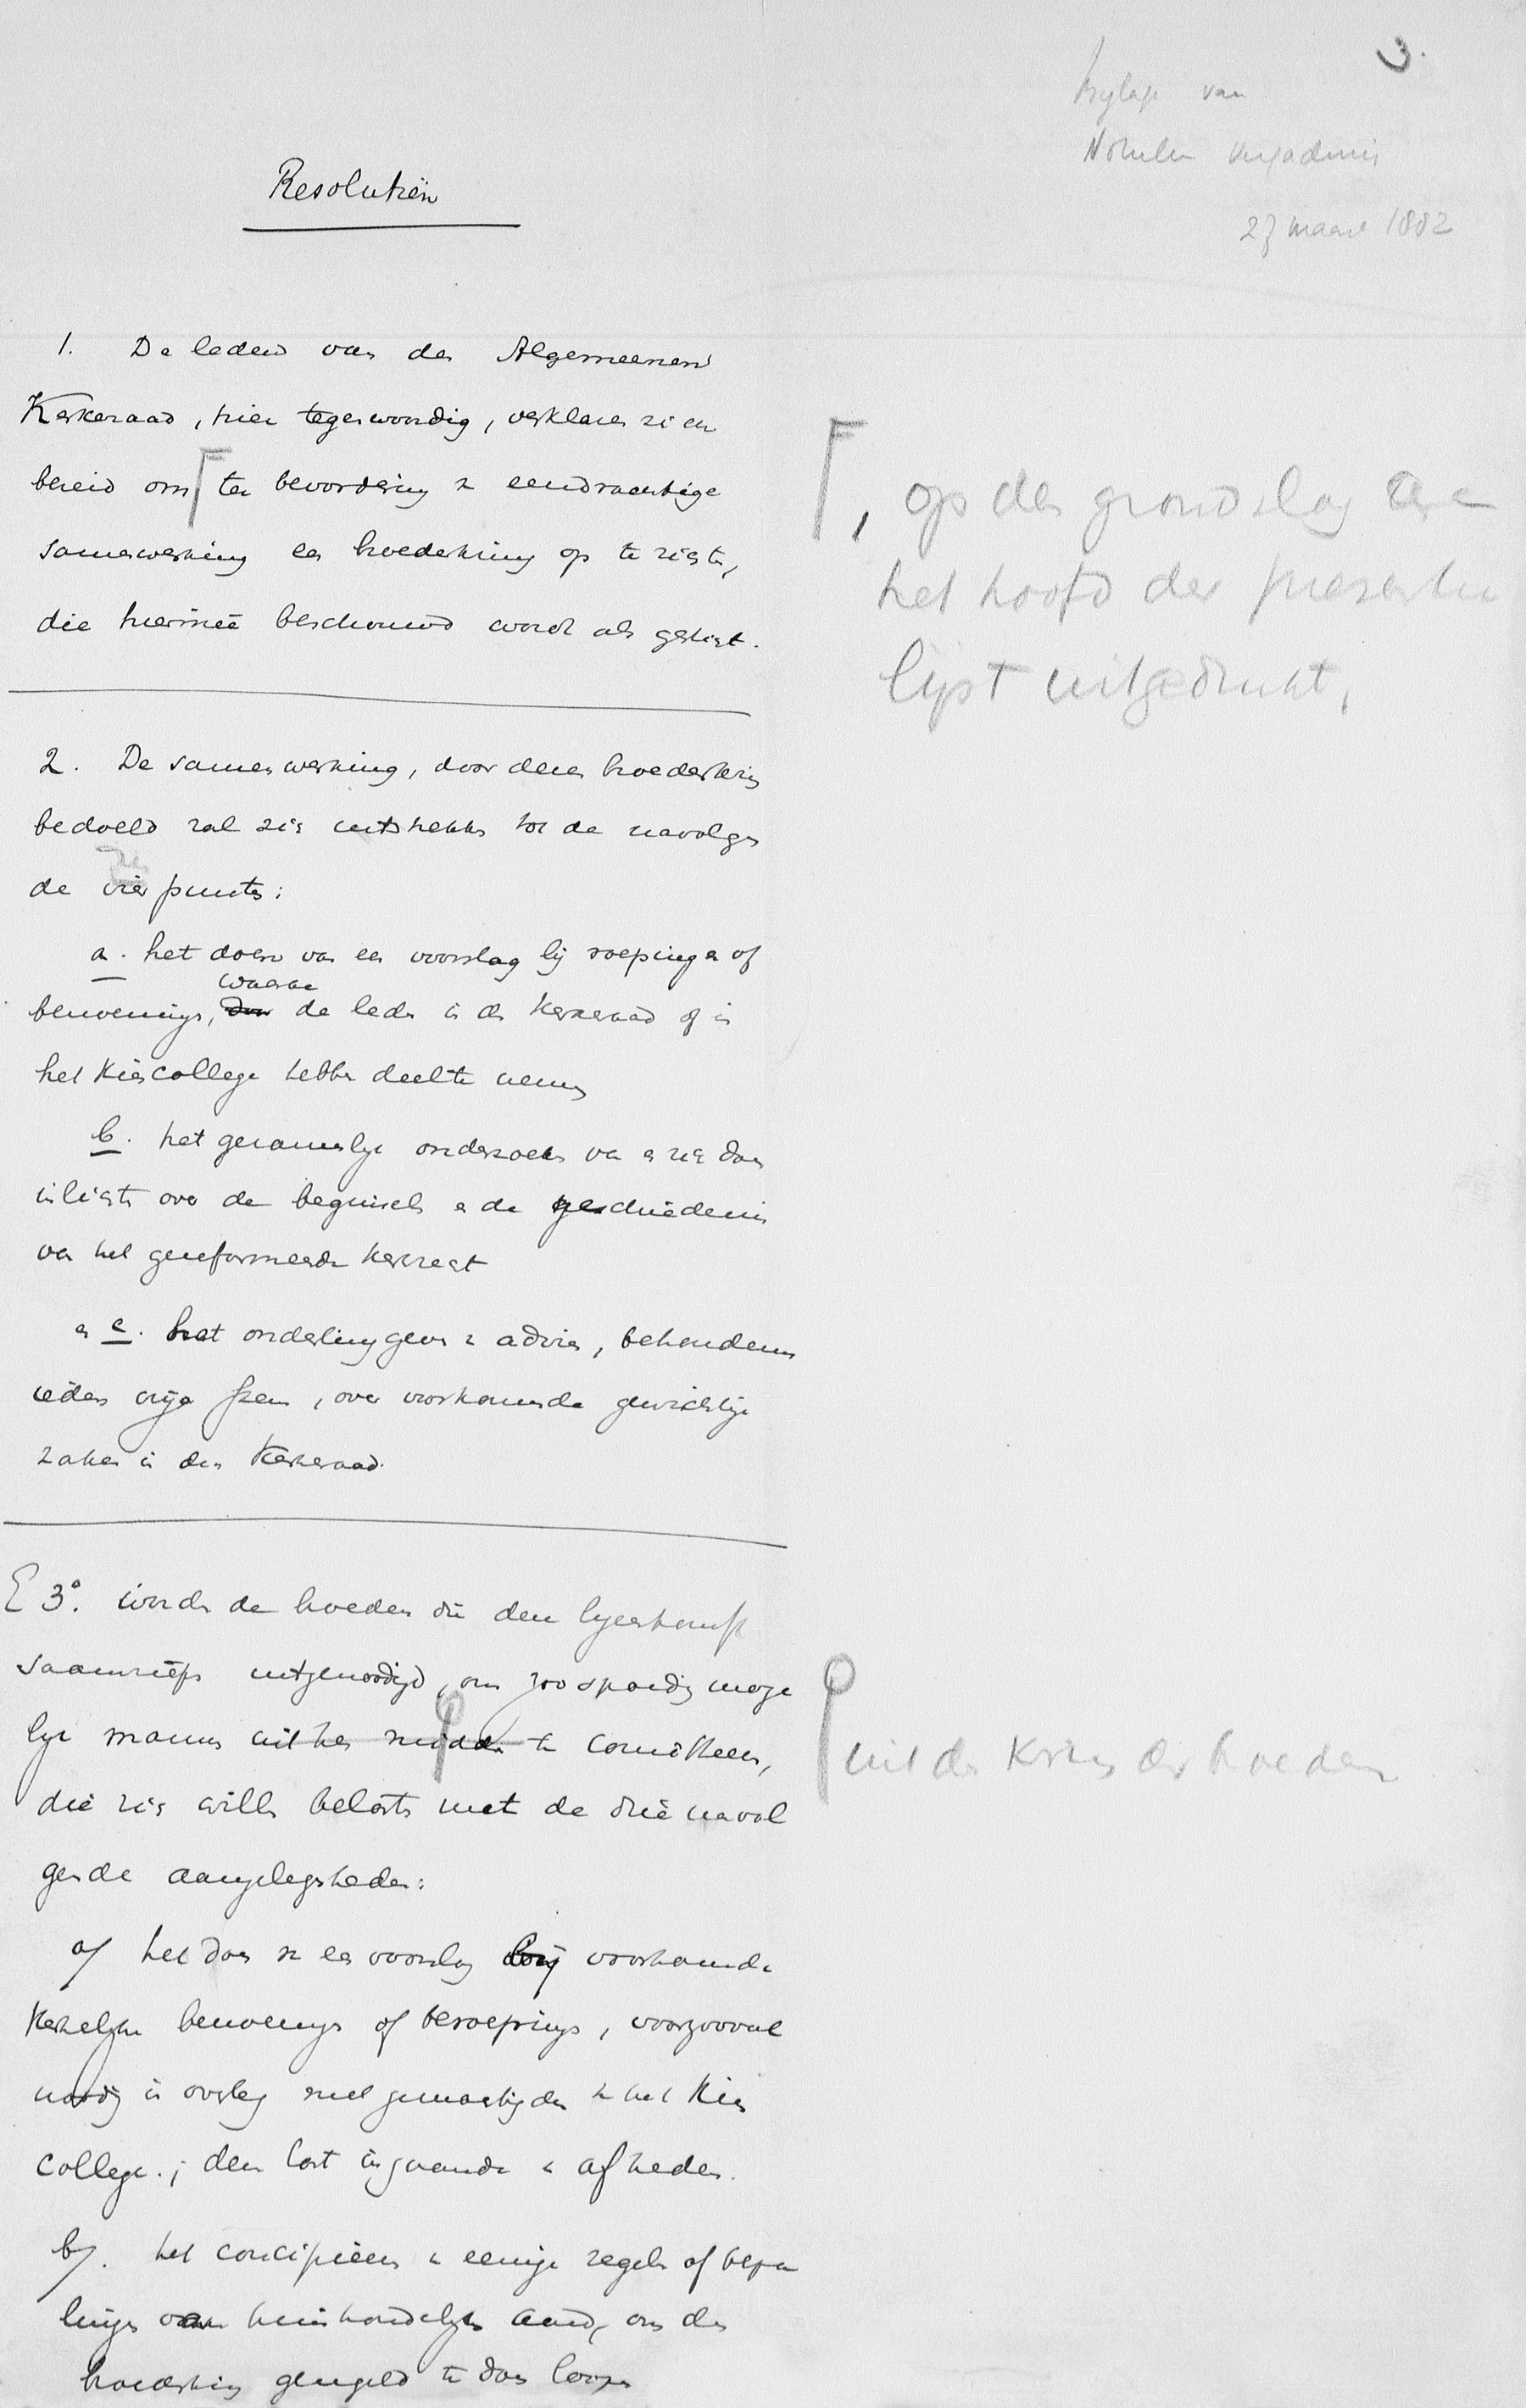 3.
Bylage van
Notulen vergadering
27 maart 1882
Resolutiën
1. De leden van den Algemeenen
Kerkeraad, hier tegenwoordig, verklaren zich
bereid om ten bevordering van eendrachtige
samenwerking een broederkring op te richten,
die hiermeê beschouwd wordt als gesticht.
, op den grondslag aan
het hoofd der presentie
lijst uitgedrukt,
2. De samenwerking, door dezen broederkring
bedoeld zal zich uitstrekken tot de navolgen
de drie punten:
a. het doen van een voorslag bij roepingen of
benoemingen, waaraan de leden in den Kerkeraad of in
het Kiescollege hebben deel te nemen
b. het gezamenlijk onderzoeken van en zich doen
inlichten over de beginselen en de geschiedenis
van het gereformeerde kerkrecht
en c. het onderling geven van advies, behoudens
ieders vrije stem, over voorkomende gewichtige
zaken in den Kerkeraad.
3°. worden de broeders die deze bijeenkomst
saamriepen uitgenoodigd, om zoo spoedig moge
lijk mannen uit hun midden te committeeren,
die zich willen belasten met de drie navol
gende aangelegenheden:
uit den Kring der broederen
a/ het doen van een voorslag bij voorkomende
Kerkelijke benoemingen of beroepingen, voorzooveel
noodig in overleg met gemachtigden van het Kies
college; dezen last ingaande van af heden.
b/. het concipieeren van eenige regelen of bepa
lingen van huishoudelijken aard, om den
broederkring geregeld te doen loopen